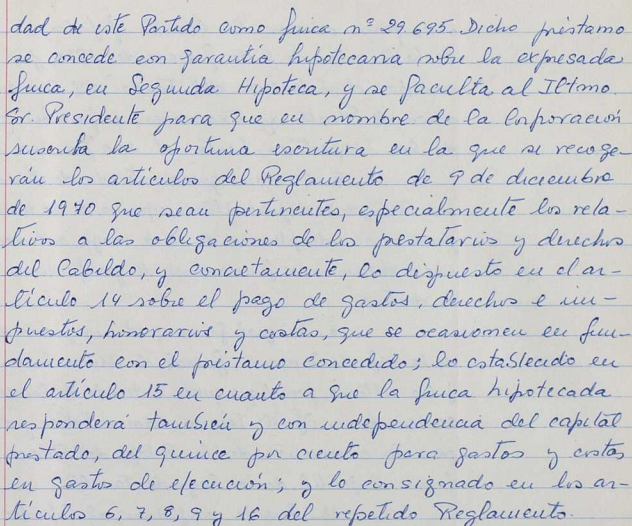 dad de este Partido como finca nº 29.695. Dicho préstamo
se concede con garantía hipotecaria sobre la expresada
finca, en Segunda Hipoteca, y se faculta al Iltmo.
Sr. Presidente para que en nombre de la Corporación
suscriba la oportuna escritura en la que se recoge-
rán los artículos del Reglamento de 9 de diciembre
de 1970 que sean pertinentes, especialmente los rela-
tivos a las obligaciones de los prestatarios y derechos
del Cabildo, y concretamente, lo dispuesto en el ar-
tículo 14 sobre el pago de gastos, derechos e im-
puestos, honorarios y costas, que se ocasionen en fun-
damento con el préstamo concedido; lo establecido en
el artículo 15 en cuanto a que la finca hipotecada
responderá también y con independencia del capital
prestado, del quince por ciento para gastos y costas
en gastos de ejecución; y lo consignado en los ar-
tículos 6, 7, 8, 9 y 16 del repetido Reglamento.